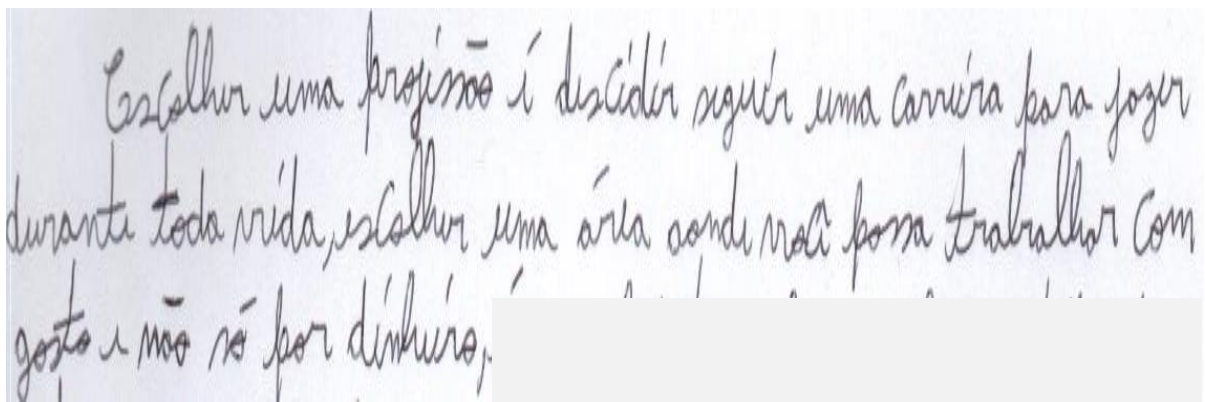 Escolher uma profissão é descidir seguir uma carreira para fazer
durante toda vida, escolher uma área aonde você possa trabalhar com
gosto e não só por dinheiro,